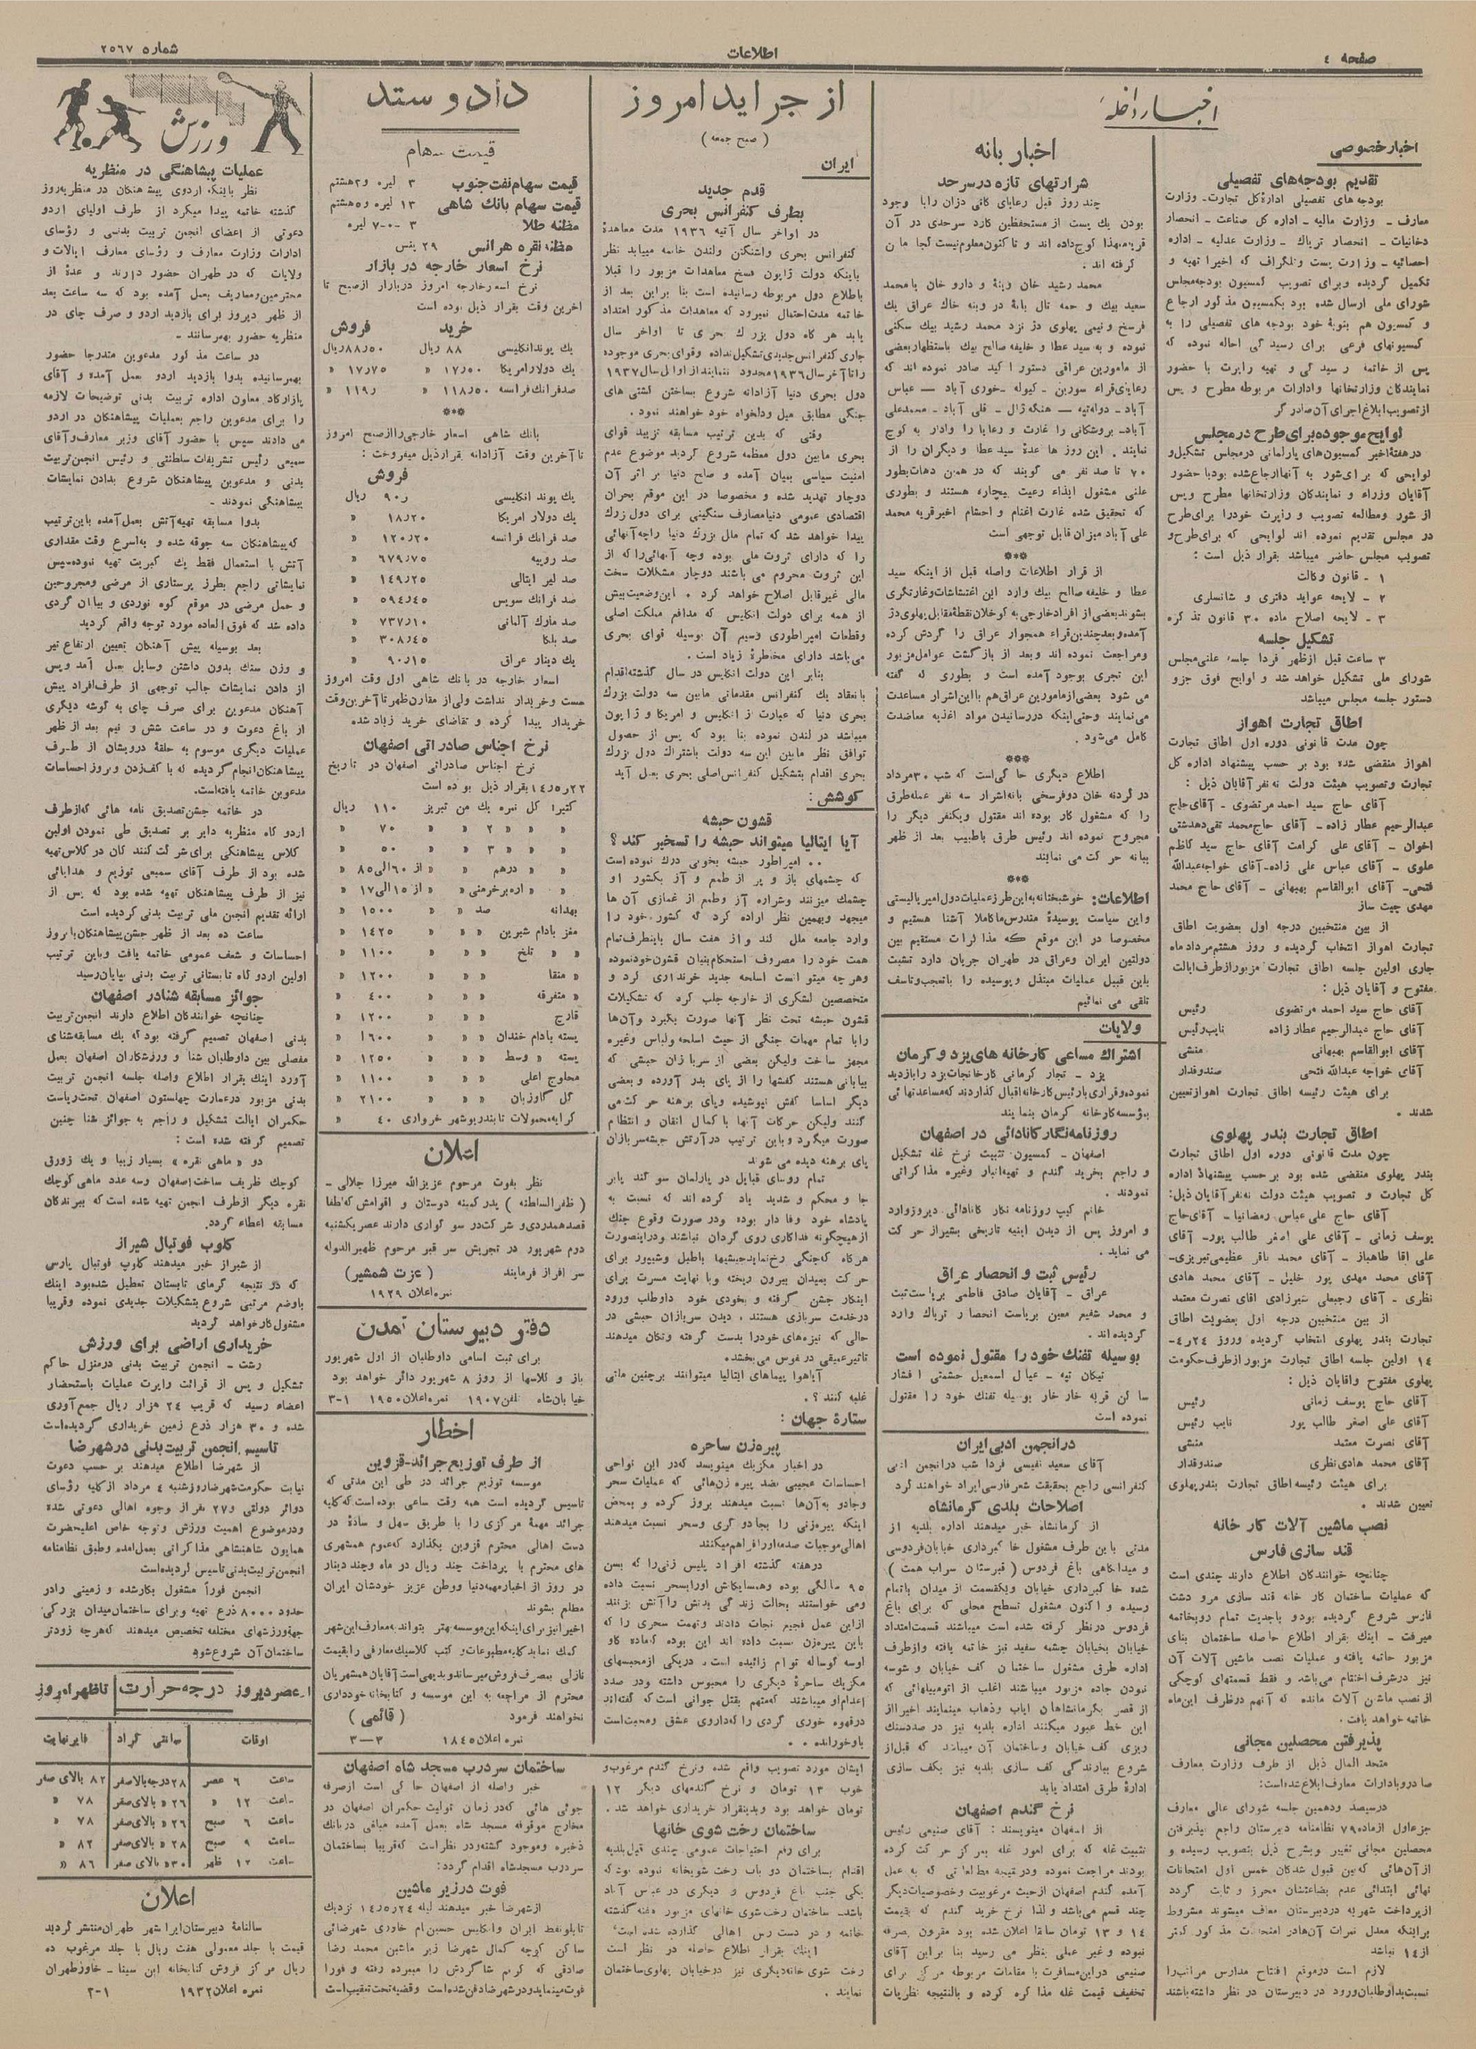 صفحه ٤
اطلاعات
شماره ۲٥٦۷
اخبار داخله
اخبار خصوصی
تقدیم بودجه‌های تفصیلی
بودجه های تفصیلی ادارهٔ کل تجارت - وزارت
معارف - وزارت مالیه - اداره کل صناعت - انحصار
دخانیات - انحصار تریاک - وزارت عدلیه - اداره
احصائیه - وزارت پست و تلگراف که اخیرا تهیه و
تکمیل گردیده و برای تصویب کمسیون بودجه مجلس
شورای ملی ارسال شده بود بکمسیون مذکور ارجاع
و کمسیون هم بنوبهٔ خود بودجه های تفصیلی را به
کمسیونهای فرعی برای رسیدگی احاله نموده که
پس از خاتمه رسیدگی و تهیه راپرت با حضور
نمایندگان وزارتخانها وادارات مربوطه مطرح و پس
از تصویب ابلاغ اجرای آن صادر گر
لوایح موجوده برای طرح در مجلس
در هفتهٔ اخیر کمسیون های پارلمانی در مجلس تشکیل و
لوایحی که برای شور به آنها ارجاع شده بود با حضور
آقایان وزراء و نمایندگان وزارتخانها مطرح و پس
از شور و مطالعه تصویب و راپرت خود را برای طرح
در مجلس تقدیم نموده اند لوایحی که برای طرح و
تصویب مجلس حاضر میباشد بقرار ذیل است :
۱ - قانون وکالت
۲ - لایحه عواید دفتری و شانسلری
۳ - لایحه اصلاح ماده ۳۰ قانون تذکره
تشکیل جلسه
۳ ساعت قبل از ظهر فردا جلسه علنی مجلس
شورای ملی تشکیل خواهد شد و لوایح فوق جزو
دستور جلسه مجلس میباشد
اطاق تجارت اهواز
چون مدت قانونی دوره اول اطاق تجارت
اهواز منقضی شده بود بر حسب پیشنهاد اداره کل
تجارت وتصویب هیئت دولت نه نفر آقایان ذیل :
آقای حاج سید احمد مرتضوی - آقای حاج
عبدالرحیم عطار زاده - آقای حاج محمد تقی دهدشتی
اخوان - آقای علی کرامت آقای حاج سید کاظم
علوی - آقای عباس علی زاده - آقای خواجه عبدالله
فتحی - آقای ابوالقاسم بهبهانی - آقای حاج محمد
مهدی چیت ساز
از بین منتخبین درجه اول بعضویت اطاق
تجارت اهواز انتخاب گردیده و روز هشتم مرداد ماه
جاری اولین جلسه اطاق تجارت مزبور از طرف ایالت
مفتوح و آقایان ذیل :
آقای حاج سید احمد مرتضوی رئیس
آقای حاج عبدالرحیم عطار زاده نایب رئیس
آقای ابوالقاسم بهبهانی منشی
آقای خواجه عبدالله فتحی صندوقدار
برای هیئت رئیسه اطاق تجارت اهواز تعیین
شدند .
اطاق تجارت بندر پهلوی
چون مدت قانونی دوره اول اطاق تجارت
بندر پهلوی منقضی شده بود برحسب پیشنهاد اداره
کل تجارت و تصویب هیئت دولت نه نفر آقایان ذیل:
آقای حاج علی عباس رمضانیا - آقای حاج
یوسف زمانی - آقای علی اصغر طالب پور - آقای
علی اقا طاهباز - آقای محمد باقر عظیمی تبریزی -
آقای محمد مهدی پور خلیل - آقای محمد هادی
نظری - آقای رجبعلی سبزواری آقای نصرت معتمد
از بین منتخبین درجه اول بعضویت اطاق
تجارت بندر پهلوی انتخاب گردیده وروز ۲٤ر٤-
۱٤ اولین جلسه اطاق تجارت مزبور از طرف حکومت
پهلوی مفتوح واقایان ذیل :
آقای حاج یوسف زمانی رئیس
آقای علی اصغر طالب پور نایب رئیس
آقای نصرت معتمد منشی
آقای محمد هادی نظری صندوقدار
برای هیئت رئیسه اطاق تجارت بندر پهلوی
تعیین شدند .
نصب ماشین آلات کار خانه
قند سازی فارس
چنانچه خوانندگان اطلاع دارند چندی است
که عملیات ساختمان کار خانه قند سازی مرو دشت
فارس شروع گردیده بود و باجدیت تمام رو بخاتمه
میرفت - اینک بقرار اطلاع حاصله ساختمان بنای
مزبور خاتمه یافته و عملیات نصب ماشین آلات آن
نیز در شرف اختتام می باشد و فقط قسمتهای کوچکی
از نصب ماشین آلات مانده که آنهم در ظرف این ماه
خاتمه خواهد یافت .
پذیرفتن محصلین مجانی
متحد المال ذیل از طرف وزارت معارف
صادر و بادارات معارف ابلاغ شده است:
در سیصد و دهمین جلسه شورای عالی معارف
جزء اول از ماده ۷۹ نظامنامه دبیرستان راجع بپذیرفتن
محصلین مجانی تغییر و بشرح ذیل بتصویب رسیده و
از آن هائی که بین قبول شدگان خمس اول امتحانات
نهائی ابتدائی عدم بضاعتشان محرز و ثابت گردد
از پرداخت شهریه در دبیرستان معاف میشوند مشروط
براینکه معدل نمرات آن ها در امتحانات مذکور کمتر
از ۱٤ نباشد
لازم است در موقع افتتاح مدارس مراتب را
نسبت بداوطلبان ورود در دبیرستان در نظر داشته باشند
اخبار بانه
شرارتهای تازه در سرحد
چند روز قبل رعایای کانی دزان رابا وجود
بودن یک پست از مستحفظین گارد سرحدی در آن
قریه بهمه‌ا کوچ داده اند و تاکنون معلوم نیست کجا مان
گرفته اند .
محمد رشید خان وینهٔ و دارو خان با محمد
سعید بیک و حمه تال بانهٔ در وینه خاک عراق یک
فرسخ و نیمی پهلوی دز نزد محمد رشید بیک سکنی
نموده و به سید عطا و خلیفه صالح بیک باستظهار بعضی
از مامورین عراقی دستور اکید صادر نموده اند که
رعایای قراء سورین - کیوله - خوری آباد - عباس
آباد - دوله تپه - هنگه ژال - قلی آباد - محمد علی
آباد - بروشکانی را غارت و رعایا را وادار به کوچ
نمایند . این روز ها عدهٔ سید عطا و دیگران را از
۷۰ تا صد نفر می گویند که در همن دهات بطور
علنی مشغول ایذاء رعیت بیچاره هستند و بطوری
که تحقیق شده غارت اغنام و احشام اخیر قریه محمد
علی آباد میزان قابل توجهی است
***
از قرار اطلاعات واصله قبل از اینکه سید
عطا و خلیفه صالح بیک وارد این اغتشاشات و غارتگری
بشوند بعضی از افراد خارجی به کوخلان نقطهٔ مقابل پهلوی دژ
آمده و بعد چندین قراء همجوار عراقی را گردش کرده
و مراجعت نموده اند و بعد از بازگشت عوامل مزبور
این تجری بوجود آمده است و بطوری که گفته
می شود بعضی از مامورین عراق هم با این اشرار مساعدت
می نمایند و حتی اینکه در رسانیدن مواد اغذیه معاضدت
کامل می‌شود .
***
اطلاع دیگری حاکی است که شب ۳۰ مرداد
در گردنه خان دوفرسخی بانه اشرار سه نفر عمله طرق
را که مشغول کار بوده اند مقتول ویکنفر دیگر را
مجروح نموده اند رئیس طرق باطبیب بعد از ظهر
ببانه حرکت می نمایند
***
اطلاعات: خوشبختانه به این طرز عملیات دول امپریالیستی
واین سیاست پوسیدهٔ متدرس ما کاملا آشنا هستیم و
مخصوصا در این موقع که مذاکرات مستقیم بین
دولتین ایران وعراق در طهران جریان دارد تشبث
باین قبیل عملیات مبتذل و پوسیده را با تعجب و تاسف
تلقی می نمائیم
ولایات
اشتراک مساعی کارخانه های یزد و کرمان
یزد - تجار کرمانی کارخانجات یزد را بازدید
نموده و قراری با رئیس کارخانه اقبال گذاردند که مساعدتهائی
بمؤسسه کارخانه کرمان بنمایند
روزنامه نگار کانادائی در اصفهان
اصفهان - کمسیون تثبیت نرخ غله تشکیل
و راجع بخرید گندم و تهیه انبار وغیره مذاکراتی
نمودند .
خانم کیپ روزنامه نگار کانادائی دیروز وارد
و امروز پس از دیدن ابنیه تاریخی بشیراز حرکت
می نماید .
رئیس ثبت و انحصار عراق
عراق - آقایان صادق فاطمی بریاست ثبت
و محمد شفیع معین بریاست انحصار تریاک وارد
گردیده اند .
بوسیله تفنگ خود را مقتول نموده است
نیکان تپه - عیال اسمعیل حشمتی افشار
ساکن قریه خار خار بوسیله تفنگ خود را مقتول
نموده است
در انجمن ادبی ایران
آقای سعید نفیسی فردا شب در انجمن ادبی
کنفرانسی راجع بحقیقت شعر فارسی ایراد خواهند کرد
اصلاحات بلدی کرمانشاه
از کرمانشاه خبر میدهند اداره بلدیه از
مدتی باین طرف مشغول خاکبرداری خیابان فردوسی
و میدانگاهی باغ فردوس ( قبرستان سراب همت )
شده خاکبرداری خیابان ویکقسمت از میدان باتمام
رسیده و اکنون مشغول تسطیح محلی که برای باغ
فردوس در نظر گرفته شده است میباشند قسمت امتداد
خیابان بخیابان چشمه سفید نیز خاتمه یافته و از طرف
اداره طرق مشغول ساختمان کف خیابان و شوسه
نمودن جاده مزبور میباشند اغلب از اتومبیلهائی که
از قصر بکرمانشاهان ایاب وذهاب مینمایند اخیرا از
این خط عبور میکنند اداره بلدیه نیز در صدد سنگ
ریزی کف خیابان و ساختمان آن میباشد که قبل از
شروع ببارندگی کف سازی بلدیه نیز بکف سازی
ادارهٔ طرق امتداد یابد
نرخ گندم اصفهان
از اصفهان مینویسند : آقای صنیعی رئیس
تثبیت غله که برای امور غله بمرکز حرکت کرده
بودند مراجعت نموده و در نتیجه مطالعاتی که به عمل
آمده گندم اصفهان از حیث مرغوبیت و خصوصیات دیگر
چند قسم می باشد و لذا نرخ خرید گندم که بقیمت
۱٤ و ۱۳ تومان سابقا اعلان شده بود مقرون بصرفه
نبوده و غیر عملی بنظر می رسید بنا براین آقای
صنیعی در این مسافرت با مقامات مربوطه مرکز برای
تخفیف قیمت غله مذاکره کرده و بالنتیجه نظریات
از جراید امروز
( صبح جمعه )
ایران
قدم جدید
بطرف کنفرانس بحری
در اواخر سال آتیه ۱۹۳٦ مدت معاهدهٔ
کنفرانس بحری واشنگتن ولندن خاتمه مییابد نظر
باینکه دولت ژاپون فسخ معاهدات مزبور را قبلا
باطلاع دول مربوطه رسانیده است بنا براین بعد از
خاتمه مدت احتمال نمیرود که معاهدات مذکور امتداد
یابد هر گاه دول بزرگ بحری تا اواخر سال
جاری کنفرانس جدیدی تشکیل نداده و قوای بحری موجوده
را تا آخر سال ۱۹۳٦ محدود ننمایند از اوایل سال ۱۹۳۷
دول بحری دنیا آزادانه شروع بساختن کشتی های
جنگی مطابق میل و دلخواه خود خواهند نمود .
وقتی که بدین ترتیب مسابقه تزیید قوای
بحری مابین دول معظمه شروع گردید موضوع عدم
امنیت سیاسی بمیان آمده و صلح دنیا بر اثر آن
دوچار تهدید شده و مخصوصا در این موقع بحران
اقتصادی عمومی دنیا مصارف سنگینی برای دول بزرگ
پیدا خواهد شد که تمام ملل بزرگ دنیا را چه آنهائی
را که دارای ثروت ملی بوده وچه آنهائی را که از
این ثروت محروم می باشند دوچار مشکلات سخت
مالی غیر قابل اصلاح خواهد کرد . این وضعیت بیش
از همه برای دولت انگلیس که مدافع مملکت اصلی
وقطعات امپراطوری وسیع آن بوسیله قوای بحری
می‌باشد دارای مخاطرهٔ زیاد است .
بنابر این دولت انگلیس در سال گذشته اقدام
بانعقاد یک کنفرانس مقدماتی مابین سه دولت بزرگ
بحری دنیا که عبارت از انگلیس و امریکا و ژاپون
میباشد در لندن نموده بنا بود که پس از حصول
توافق نظر مابین این سه دولت باشتراک دول بزرگ
بحری اقدام بتشکیل کنفرانس اصلی بحری بعمل آید
کوشش :
قشون حبشه
آیا ایتالیا میتواند حبشه را تسخیر کند ؟
.. امپراطور حبشه بخوبی درک نموده است
که چشمهای باز و پر از طمع و آز بکشور او
چشمک میزنند وشراره آز وطمع از غمازی آن ها
میجهد وبهمین نظر اراده کرد که کشور خود را
وارد جامعه ملل کند و از هفت سال باینطرف تمام
همت خود را مصروف استحکام بنیان قشون خود نموده
وهر چه میتوانست اسلحه جدید خریداری کرد و
متخصصین لشگری از خارجه جلب کرد که تشکیلات
قشون حبشه تحت نظر آنها صورت بگیرد وآن‌ها
را با تمام مهمات جنگی از حیث اسلحه ولباس وغیره
مجهز ساخت ولیکن بعضی از سربازان حبشی که
بیابانی هستند کفشها را از پای بدر آورده و بعضی
دیگر اساسا کفش نپوشیده وپای برهنه حرکت می
کنند ولیکن حرکات آنها با کمال اتقان و انتظام
صورت میگیرد وباین ترتیب در آرتش حبشه سربازان
پای برهنه دیده می شوند
تمام روسای قبایل در پارلمان سوگند یابر
جا و محکم و شدید یاد کرده اند که نسبت به
پادشاه خود وفادار بوده ودر صورت وقوع جنگ
از هیچگونه فداکاری روی گردان نباشند و در اینصورت
هر گاه که جنگی رخ نماید حبشیها باطبل وشیپور برای
حرکت بمیدان بیرون ریخته وبا نهایت مسرت برای
اینکار جشن گرفته و بخودی خود داوطلب ورود
در خدمت سربازی هستند . دیدن سربازان حبشی در
حالی که نیزه های خود را بدست گرفته و تکان میدهند
تاثیر عمیقی در نفوس می بخشد.
آیا هوا پیماهای ایتالیا میتوانند برچنین مللی
غلبه کنند ؟ .
ستارهٔ جهان :
پیره‌زن ساحره
در اخبار مکزیک مینویسند که در این نواحی
احساسات عجیبی بضد پیره زن‌هائی که عملیات سحر
وجادو به آن‌ها نسبت میدهند بروز کرده و بمحض
اینکه پیره‌زنی را بجادوگری و سحر نسبت میدهند
اهالی موجبات صدمه او را فراهم میکنند
در هفته گذشته افراد پلیس زنی را که بسن
۹٥ سالگی بوده وهمسایگانش او را بسحر نسبت داده
ومی خواستند بحالت زندگی بدنش را آتش بزنند
از این عمل فجیع نجات دادند وتهمت سحری را که
باین پیره‌زن نسبت داده اند این بوده که ماده گاو
او سه گوساله توام زائیده است . در یکی از محبسهای
مکزیک ساحرهٔ دیگری را محبوس داشته ودر صدد
اعدام او میباشند که متهم بقتل جوانی است که گفته‌اند
در قهوه خوری گردی را که داروی عشق و محبت است
باو خورانده . .
ایشان مورد تصویب واقع شده ونرخ گندم مرغوب و
خوب ۱۳ تومان و نرخ گندمهای دیگر ۱۲
تومان خواهد بود وبدینقرار خریداری خواهد شد .
ساختمان رخت شوی خانها
برای رفع احتیاجات عمومی چندی قبل بلدیه
اقدام بساختمان دو باب رخت شویخانه نموده بود که
یکی جنب باغ فردوس و دیگری در عباس آباد
باشد . ساختمان رخت شوی خانهای مزبور هفته گذشته
خاتمه و در دسترس اهالی گذارده شده است .
اینک بقرار اطلاع حاصله در نظر است
رخت شوی خانه دیگری نیز در خیابان پهلوی ساختمان
نمایند .
داد و ستد
قیمت سهام
قیمت سهام نفت جنوب ۳ لیره و ۳ هشتم
قیمت سهام بانک شاهی ۱۳ لیره و ٥ هشتم
مظنه طلا ۳ -۰-۷ لیره
مظنه نقره هر انس ۲۹ پنس
نرخ اسعار خارجه در بازار
نرخ اسعار خارجه امروز در بازار از صبح تا
آخرین وقت بقرار ذیل بوده است
خرید فروش
یک پوند انگلیسی ۸۸ ریال ٥۰ر۸۸ ریال
یک دولار امریکا ٥۰ر۱۷ » ۷٥ر۱۷ »
صد فرانک فرانسه ٥۰ر۱۱۸ » ۱۱۹ر »
***
بانک شاهی اسعار خارجی را از صبح امروز
تا آخرین وقت آزادانه بقرار ذیل میفروخت :
فروش
یک پوند انگلیسی ۹۰ر ریال
یک دولار امریکا ۲۰ر۱۸ »
صد فرانک فرانسه ۱۲۰ر۲۰ »
صد روپیه ٦۷۹ر۷٥ »
صد لیر ایتالی ۱٤۹ر۲٥ »
صد فرانک سویس ٥۹٤ر٤٥ »
صد مارک آلمانی ۷۳۷ر۱۰ »
صد بلگا ۳۰۸ر٤٥ »
یک دینار عراق ۹۰ر۱٥ »
اسعار خارجه در بانک شاهی اول وقت امروز
سست و خریدار نداشت ولی از مقارن ظهر تا آخرین وقت
خریدار پیدا کرده و تقاضای خرید زیاد شده
نرخ اجناس صادراتی اصفهان
نرخ اجناس صادراتی اصفهان در تاریخ
۲۲ر٥ر۱٤ بقرار ذیل بوده است
کتیرا گل نمره یک من تبریز ۱۱۰ ریال
» » » ۲ » » ۷۰ »
» » » ۳ » » ٥۰ »
» » درهم » » از ٦۰ الی ۸٥ »
» » اره بر خرمنی » » از ۱٥ الی ۱۷ »
بهدانه صد » » ۱٥۰۰ »
مغز بادام شیرین » » » ۱٤۲٥ »
» » تلخ » » » ۱۱۰۰ »
» منقا » » » ۱۲۰۰ »
» متفرقه » » » ٤۰۰ »
قارچ » » » ۱۲۰۰ »
پسته بادام خندان » » » ۱٦۰۰ »
پسته » وسط » » » ۱۲٥۰ »
محلوج اعلی » » » ۱۱۰۰ »
گل گاوزبان » » » ۲۱۰۰ »
کرایه محمولات تا بندر بوشهر خرواری ٤۰ »
اعلان
نظر بفوت مرحوم عزیزالله میرزا جلالی -
( ظفر السلطنه ) بدینکمینه دوستان و اقوامش که لطفا
قصد همدردی و شرکت در سوگواری دارند عصر یکشنبه
دوم شهریور در تجریش سر قبر مرحوم ظهیرالدوله
سر افراز فرمایند ( عزت شمشیر )
نمره اعلان ۱۹۲۹
دفتر دبیرستان تمدن
برای ثبت اسامی داوطلبان از اول شهریور
باز و کلاسها از روز ۸ شهریور دائر خواهد بود
خیابان شاه تلفن ۱۹۰۷ نمره اعلان ۱۹٥۰ ۱-۳
اخطار
از طرف توزیع جرائد - قزوین
موسسه توزیع جرائد در طی این مدتی که
تاسیس گردیده است همه وقت ساعی بوده است که کلیه
جرائد مهمهٔ مرکزی را با طریق سهل و سادهٔ در
دست اهالی محترم قزوین بگذارد که عموم همشهری
های محترم با پرداخت چند ریال در ماه وچند دینار
در روز از اخبار مهمه دنیا و وطن عزیز خودشان ایران
مطلع بشوند
اخیرا نیز برای اینکه این موسسه بهتر بتواند به معارف این شهر
کمک نماید کلیه مطبوعات و کتب کلاسیک معارفی را بقیمت
نازلی بمصرف فروش میرساند و بدیهی است آقایان همشهریان
محترم از مراجعه به این موسسه و کتابخانه خودداری
نخواهند فرمود ( قائمی )
نمره اعلان ۱۸٤٥ ۳ - ۳
ساختمان سردرب مسجد شاه اصفهان
خبر واصله از اصفهان حاکی است از صرفه
جوئی هائی که در زمان تولیت حکمران اصفهان در
مخارج موقوفه مسجد شاه بعمل آمده مبلغی در بانک
ذخیره و موجود گشته و در نظر است که قریبا ساختمان
سردرب مسجد شاه اقدام گردد:
فوت در زیر ماشین
از شهرضا خبر میدهند لیله ۲٤ر٥ر۱٤ نزدیک
تابلو نفط ایران و انگلیس حسین‌ام خاوری شهرضائی
ساکن کوچه کمال شهرضا زیر ماشین محمد رضا
صادقی که کریم شاگردش را میبرده رفته و فورا
فوت مینماید و در شهرضا دفن شده است و قضیه تحت تعقیب است
ورزش
عملیات پیشاهنگی در منظریه
نظر باینکه اردوی پیشاهنگان در منظریه روز
گذشته خاتمه پیدا میکرد از طرف اولیای اردو
دعوتی از اعضای انجمن تربیت بدنی و رؤسای
ادارات وزارت معارف و رؤسای معارف ایالات و
ولایات که در طهران حضور دارند و عدهٔ از
محترمین و معاریف بعمل آمده بود که سه ساعت بعد
از ظهر دیروز برای بازدید اردو و صرف چای در
منظریه حضور بهمرسانند .
در ساعت مذکور مدعوین متدرجا حضور
بهمرسانیده بدوا بازدید اردو بعمل آمده و آقای
بازارگاد معاون اداره تربیت بدنی توضیحات لازمه
را برای مدعوین راجع بعملیات پیشاهنگان در اردو
می دادند سپس با حضور آقای وزیر معارف و آقای
سمیعی رئیس تشریفات سلطنتی و رئیس انجمن تربیت
بدنی و مدعوین پیشاهنگان شروع بدادن نمایشات
پیشاهنگی نمودند .
بدوا مسابقه تهیه آتش بعمل آمده باین ترتیب
که پیشاهنگان سه جوقه شده و به اسرع وقت مقداری
آتش با استعمال فقط یک کبریت تهیه نموده - پس
نمایشاتی راجع بطرز پرستاری از مرضی و مجروحین
و حمل مرضی در موقع کوه نوردی و بیابان گردی
داده شد که فوق العاده مورد توجه واقع گردید
بعد بوسیله پیش آهنگان تعیین ارتفاع تیر
و وزن سنگ بدون داشتن وسایل بعمل آمد و پس
از دادن نمایشات جالب توجهی از طرف افراد پیش
آهنگان مدعوین برای صرف چای به گوشه دیگری
از باغ دعوت و در ساعت شش و نیم بعد از ظهر
عملیات دیگری موسوم به حلقهٔ درویشان از طرف
پیشاهنگان انجام گردیده که با کف زدن و بروز احساسات
مدعوین خاتمه یافته است.
در خاتمه جشن تصدیق نامه هائی که از طرف
اردوگاه منظریه دایر بر تصدیق طی نمودن اولین
کلاس پیشاهنگی برای شرکت کنند گان در کلاس تهیه
شده بود از طرف آقای سمیعی توزیع و هدایائی
نیز از طرف پیشاهنگان تهیه شده بود که پس از
ارائه تقدیم انجمن ملی تربیت بدنی گردیده است
ساعت ده بعد از ظهر جشن پیشاهنگان با بروز
احساسات و شعف عمومی خاتمه یافت وباین ترتیب
اولین اردوگاه تابستانی تربیت بدنی بپایان رسید
جوائز مسابقه شنا در اصفهان
چنانچه خوانندگان اطلاع دارند انجمن تربیت
بدنی اصفهان تصمیم گرفته بود که یک مسابقه شنای
مفصلی بین داوطلبان شنا و ورزشکاران اصفهان بعمل
آورد اینک بقرار اطلاع واصله جلسه انجمن تربیت
بدنی مزبور در عمارت چهلستون اصفهان تحت ریاست
حکمران ایالت تشکیل و راجع به جوائز شنا چنین
تصمیم گرفته شده است :
دو « ماهی نقره » بسیار زیبا و یک زورق
کوچک ظریف ساخت اصفهان وسه عدد ماهی کوچک
نقره دیگر از طرف انجمن تهیه شده است که ببرندگان
مسابقه اعطاء گردد.
کلوب فوتبال شیراز
از شیراز خبر میدهند کلوپ فوتبال پارسی
که در نتیجه گرمای تابستان تعطیل شده بود اینک
باوضع مرتبی شروع بتشکیلات جدیدی نموده و قریبا
مشغول کار خواهد گردید
خریداری اراضی برای ورزش
رشت - انجمن تربیت بدنی در منزل حاکم
تشکیل و پس از قرائت راپرت عملیات باستحضار
اعضاء رسید که قریب ۲٤ هزار ریال جمع آوری
شده و ۳۰ هزار ذرع زمین خریداری گردیده است
تاسیس انجمن تربیت بدنی در شهر ضا
از شهرضا اطلاع میدهند بر حسب دعوت
نیابت حکومت شهرضا روز شنبه ٤ مرداد از کلیه رؤسای
دوائر دولتی و ۲۷ نفر از وجوه اهالی دعوتی شده
و در موضوع اهمیت ورزش و توجه خاص اعلیحضرت
همایون شاهنشاهی مذاکراتی بعمل آمده و طبق نظامنامه
انجمن تربیت بدنی تاسیس گردیده است
انجمن فوراً مشغول بکار شده و زمینی را در
حدود ۸۰۰۰ ذرع تهیه و برای ساختمان میدان بزرگی
جهة ورزشهای مختلفه تخصیص میدهند که هر چه زودتر
ساختمان آن شروع شود
از عصر دیروز درجه حرارت تا ظهر امروز
اوقات سانتی گراد فارنهایت
ساعت ٦ عصر ۲۸ درجه بالا صفر ۸۲ بالای صفر
ساعت ۱۲ » ۲٦ » بالای صفر ۷۸ »
ساعت ٦ صبح ۲٦ » بالای صفر ۷۸ »
ساعت ۹ صبح ۲۸ » بالای صفر ۸۲ »
ساعت ۱۲ ظهر ۳۰ » بالای صفر ۸٦ »
اعلان
سالنامهٔ دبیرستان ایرانشهر طهران منتشر گردید
قیمت با جلد معمولی هفت ریال با جلد مرغوب ده
ریال مرکز فروش کتابخانه ابن سینا - خاور طهران
نمره اعلان ۱۹۳۲ ۱-۲